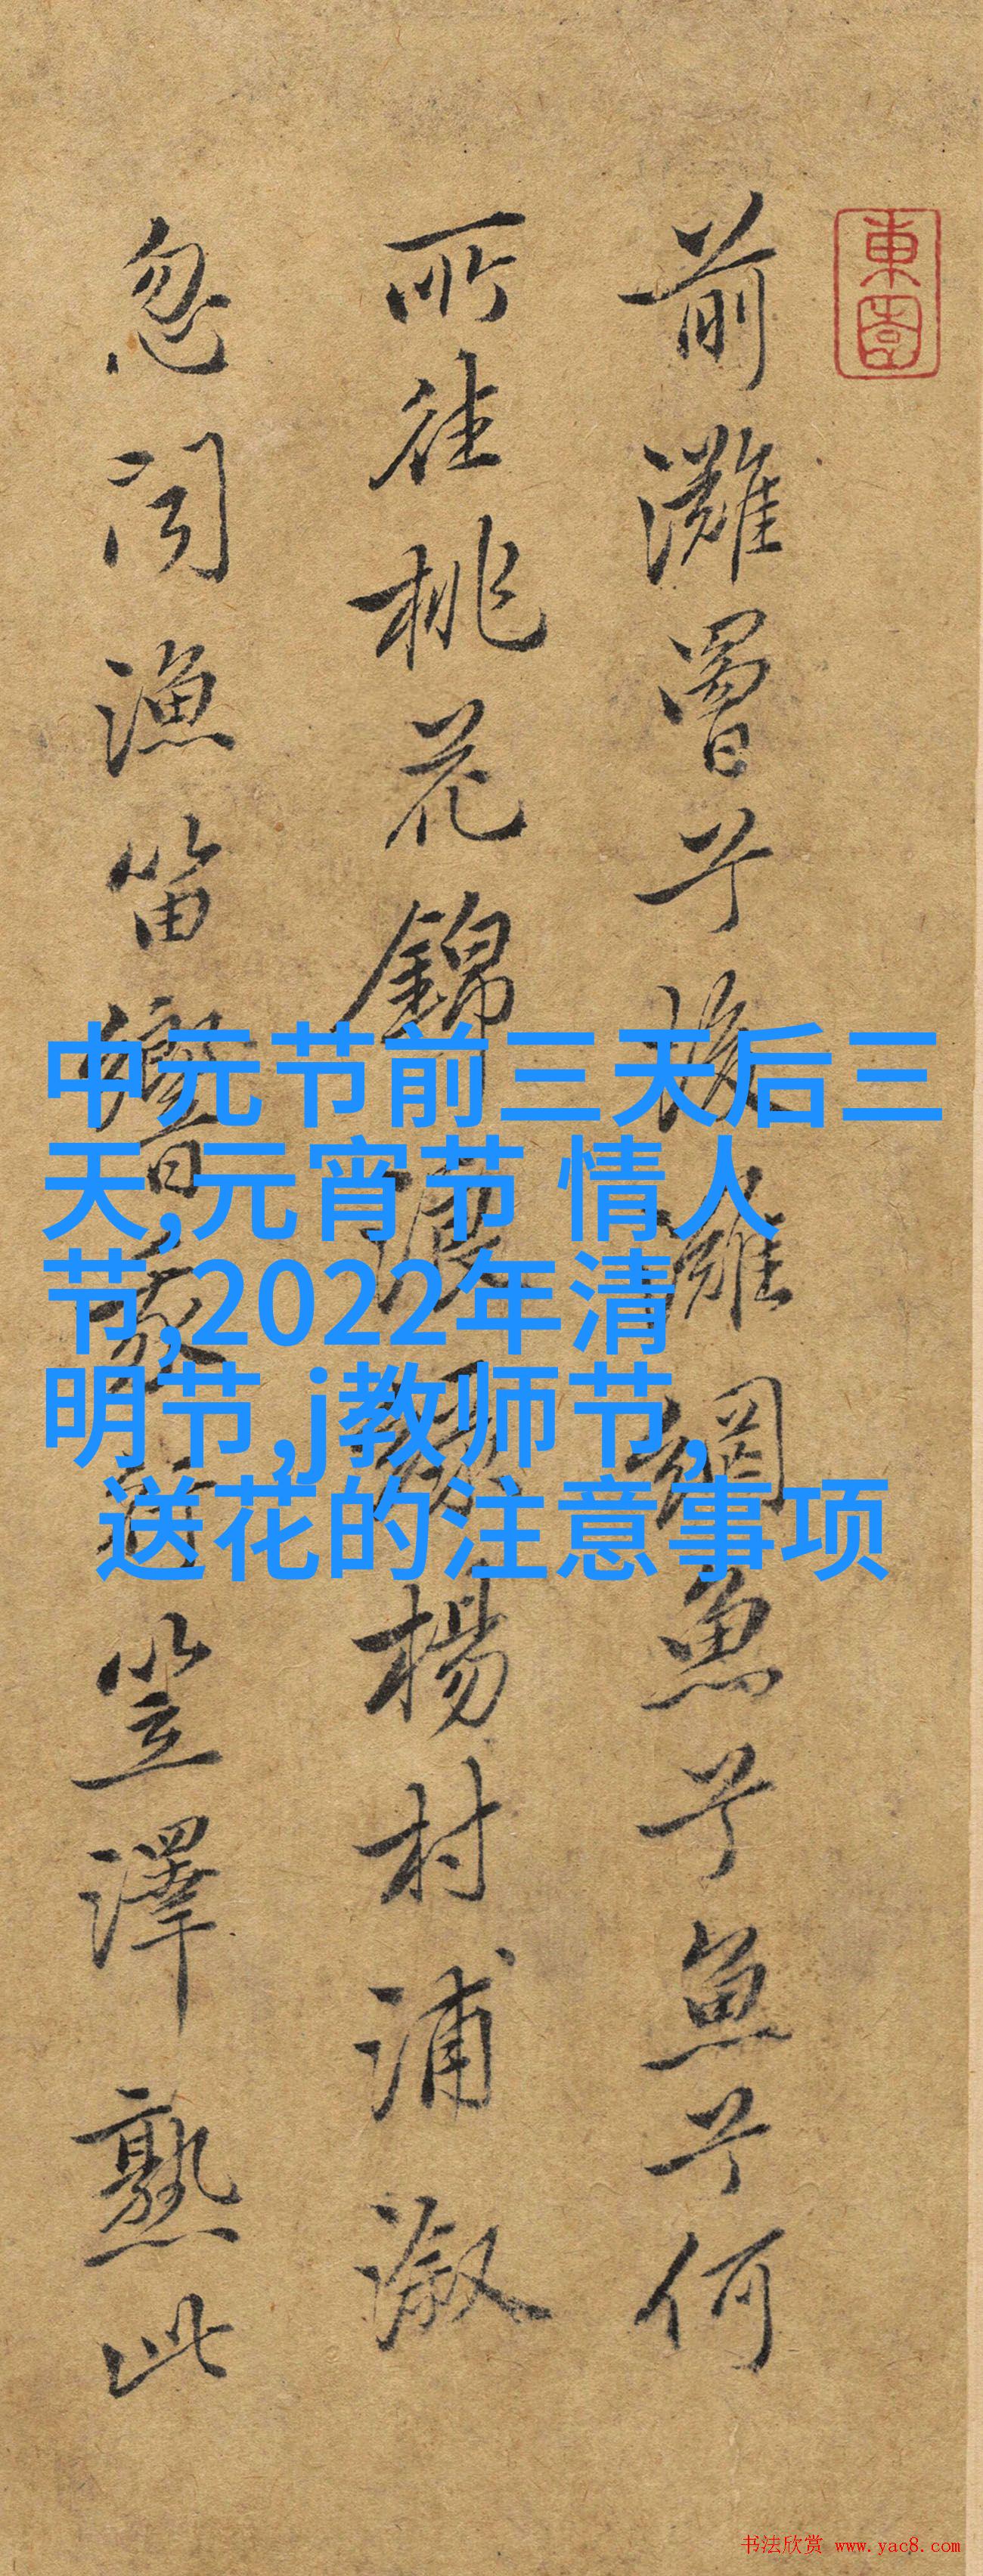 東園
前灘罾兮後灘網魚兮魚兮何
所往桃花錦浪綠楊村浦溆
忽聞漁笛響笠澤熟此
中元节前三天后三
天,元宵节 情人
节,2022年清
明节,j教师节,
送花的注意事项
书法欣赏 www.yac8.com